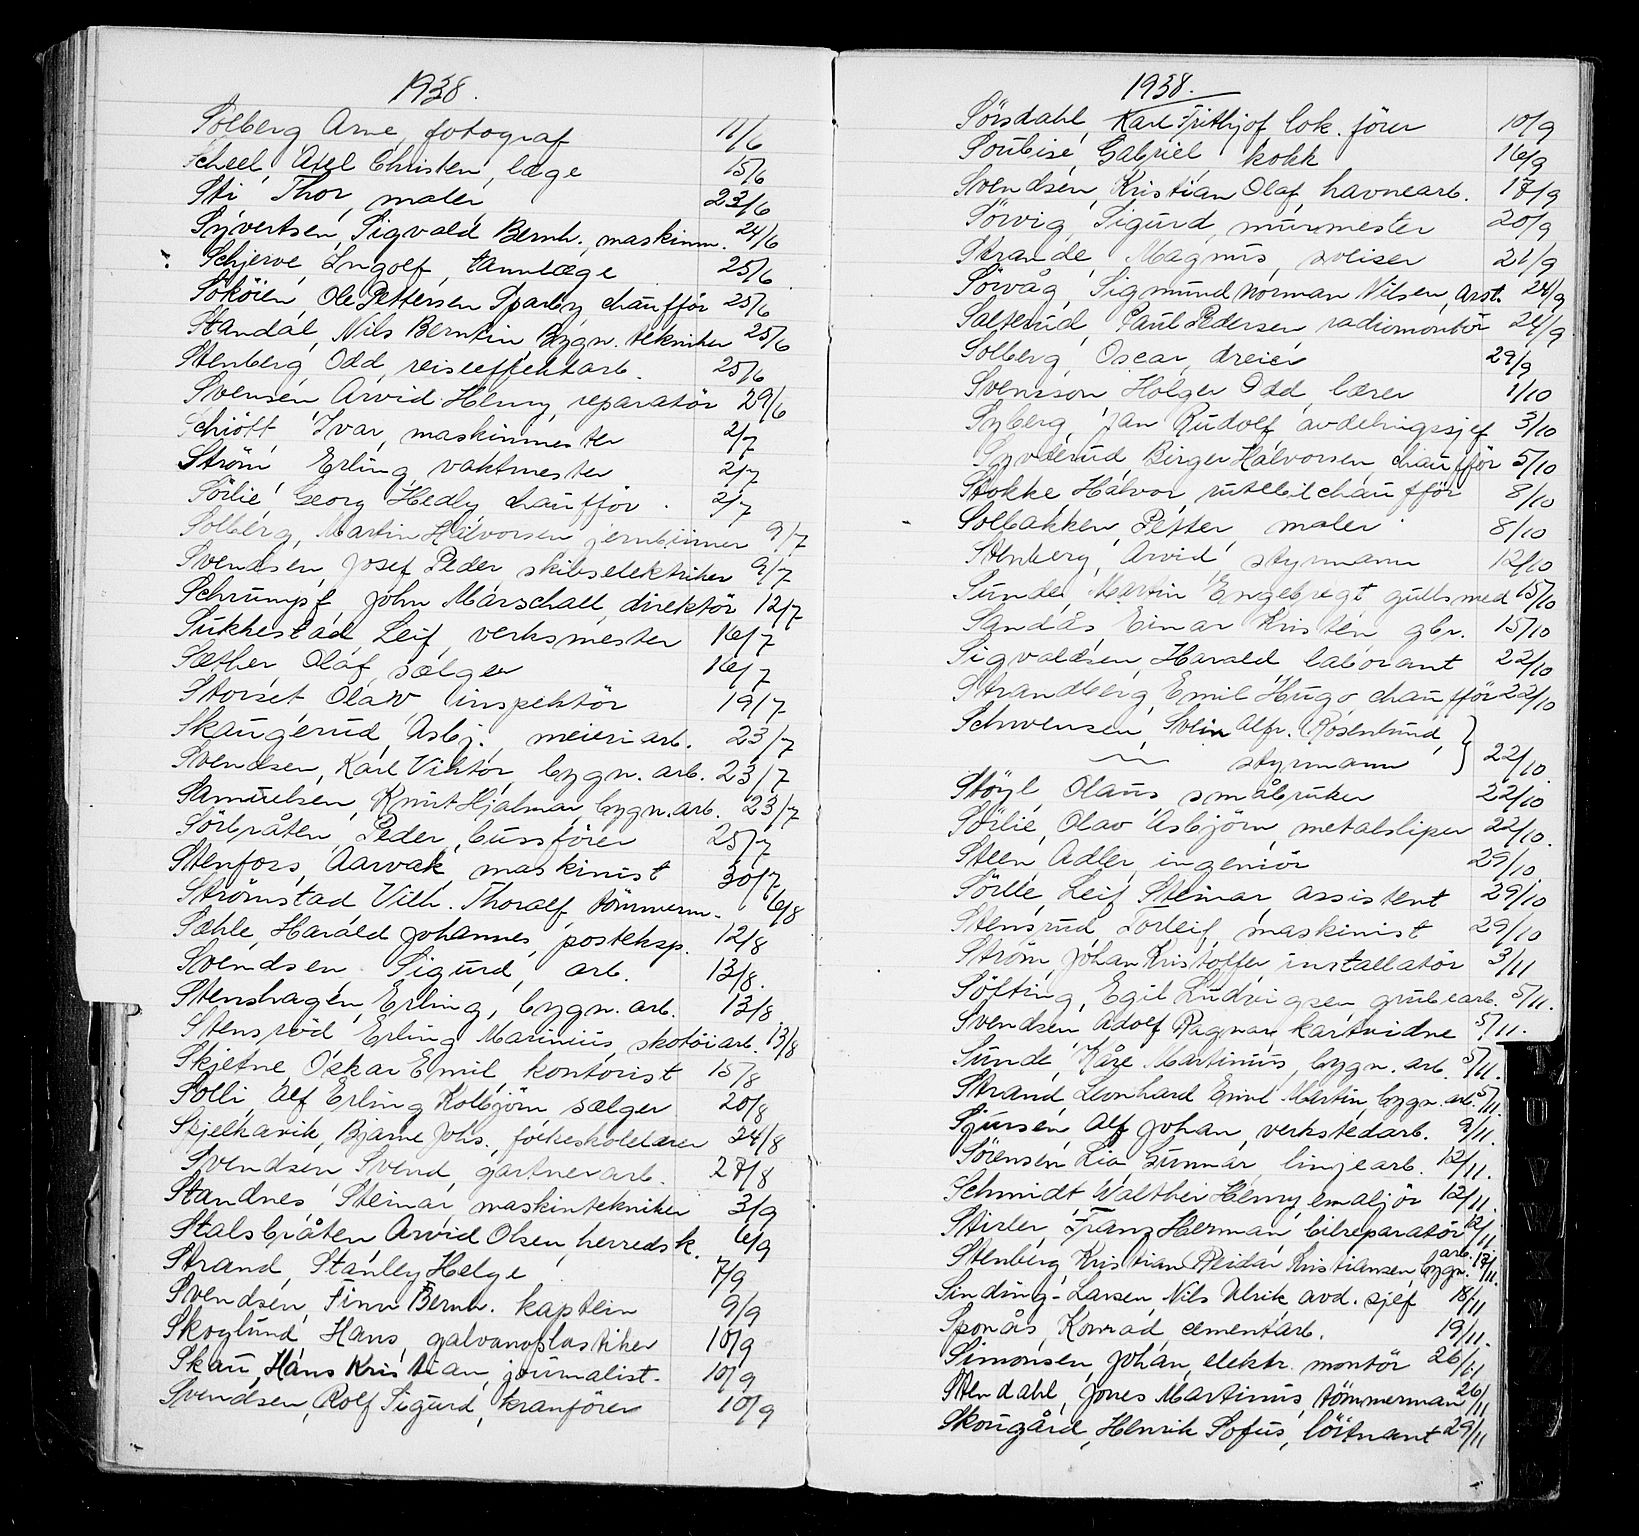 1938.
Solberg Arne, fotograf 11/6
Scheel, Axel Christen, læge 15/6
Sti Thor, maler 23/6
Syvertsen, Sigvald Bernh. maskinm. 24/6
Schjerve, Ingolf, tannlæge 25/6
Sokoien Ole Pettersen Sparby chaufför 25/6
Standal, Nils Berntin Bygn. tekniker 25/6
Stenberg Odd, reiseeffektarb. 25/6
Svensen Arvid Henry, reparatör 29/6
Schiött Ivar, maskinmester 2/7
Ström Erling vaktmester 2/7
Sörlie Georg Hedly chaufför 2/7
Solberg, Martin Halvorsen jernbinner 9/7
Svendsen Josef Peder skibselektriker 9/7
Schrumpf, John Marschall, direktör 12/7
Sukkestad Leif, verksmester 16/7
Sæther Olaf, sælger 16/7
Storset Olav, inspektör 19/7
Skaugerud, Asbj. meieriarb. 23/7
Svendsen, Karl Viktor, bygn. arb. 23/7
Samuelsen, Knut Hjalmar, bygn. arb. 23/7
Sörbråten Peder, bussförer 25/7
Stenfors, Aarvak, maskinist 30/7
Strömstad Vilh. Thoralf, tömmerm. 6/8
Sæhle, Harald Johannes, posteksp. 12/8
Svendsen Sigurd, arb. 13/8.
Stenshagen, Erling, bygn. arb. 13/8
Stensröd Erling Marinius, skotöiarb. 13/8
Skjetne Oskar Emil, kontorist 15/8
Solli, Alf Erling Kolbjörn sælger 20/8
Skjelkavik, Bjarne Johs., folkeskolelærer 24/8
Svendsen Svend, gartnerarb. 27/8
Standnes Steinar, maskintekniker 3/9
Stalsbråten Arvid Olsen, herredsk. 6/9
Strand, Stanley Helge 7/9
Svendsen, Finn Bernh. kaptein 9/9
Skoglund, Hans, galvanoplastiker 10/9
Skau, Hans Kristian, journalist. 10/9
Svendsen, Rolf Sigurd, kranförer 10/9
1938.
Sörsdahl, Karl Fritjof lok. förer 10/9
Soubise Gabriel, kokk 16/9
Svendsen, Kristian Olaf, havnearb. 17/9
Sörvig, Sigurd, murmester 20/9
Strande, Magnus, sveiser 21/9
Sörvåg, Sigmund Norman Nilsen, Arst. 24/9
Salterud, Paul Pedersen radiomontör 24/9
Solberg, Oscar, dreier 29/9
Svensson Holger Odd, lærer 1/10
Syberg, Jan Rudolf avdelingssjef 3/10
Syvderud Birger Halvorsen, chaufför 5/10
Stokke Halvor rutebilchaufför 8/10
Solbakken, Petter, maler 8/10
Stenberg, Arvid, styrmann 12/10
Sunde, Martin Engebregt gullsmed 15/10
Sandås, Einar Kristen gbr. 15/10
Sigvaldsen, Harald laborant 22/10
Strandberg, Emil Hugo, chaufför 22/10
Schwensen, Svein Alfr. Rosenlund,
styrmann 22/10.
Stöyl, Olaus småbruker 22/10
Sörlie, Olav Asbjörn, metalsliper 22/10.
Steen, Adler, ingeniör 29/10.
Sörlle, Leif Steinar assistent 29/10
Stensrud, Torleif, maskinist 29/10
Ström, Johan Kristoffer, installatör 3/11
Söfting, Egil Ludvigsen grubearb. 5/11.
Svendsen Adolf Ragnar kartvidne 5/11.
Sunde, Kåre Martinus, bygn. arb. 5/11.
Strand, Leonhard Emil Martin, bygn. arb. 5/11.
Sjursen, Alf Johan, verkstedarb. 9/11.
Sörensen, Lia Gunnar, linjearb. 12/11.
Schmidt Walther Henry emaljör 12/11.
Stirler, Franz Herman bilreparatör 12/11
Stenberg, Kristian Reidar Kristiansen, bygn. arb. 17/11.
Sinding-Larsen, Nils Ulrik, avd. sjef 18/11
Sponås, Konrad, cementarb. 19/11.
Simonsen, Johan, elektr. montör 26/11
Stendahl, Jones Martinus, tömmerman 26/11
Skougård, Henrik Sofus, löitnant 29/11